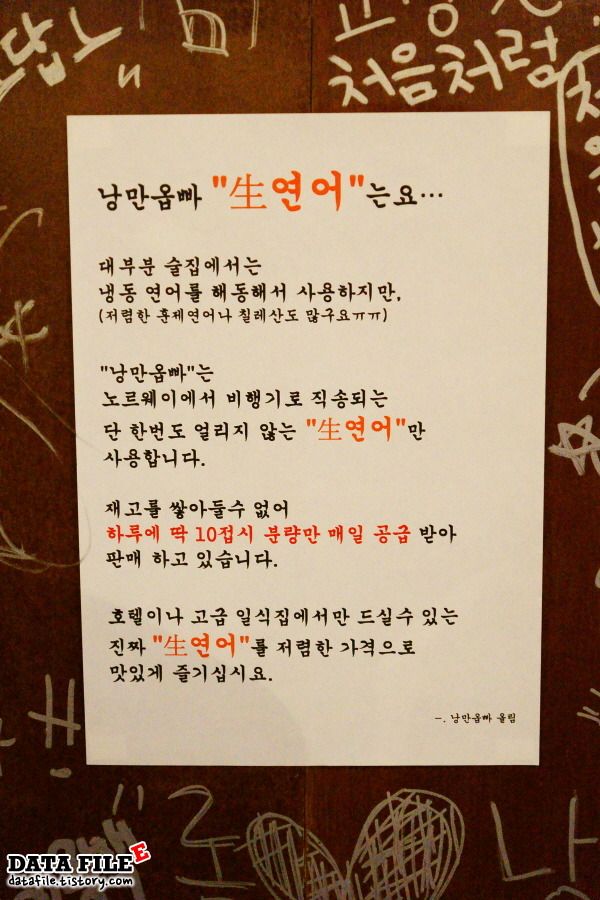 처음처럼
낭만옵빠 "生연어"는요...
대부분 술집에서는
냉동 연어를 해동해서 사용하지만,
(저렴한 훈제연어나 칠레산도 많구요ㅠㅠ)
"낭만옵빠"는
노르웨이에서 비행기로 직송되는
단 한번도 얼리지 않는 "生연어"만
사용합니다.
재고를 쌓아둘수 없어
하루에 딱 10접시 분량만 매일 공급 받아
판매 하고 있습니다.
호텔이나 고급 일식집에서만 드실수 있는
진짜 "生연어"를 저렴한 가격으로
맛있게 즐기십시요.
-. 낭만옵빠 올림
DATA FILE E
datafile.tistory.com